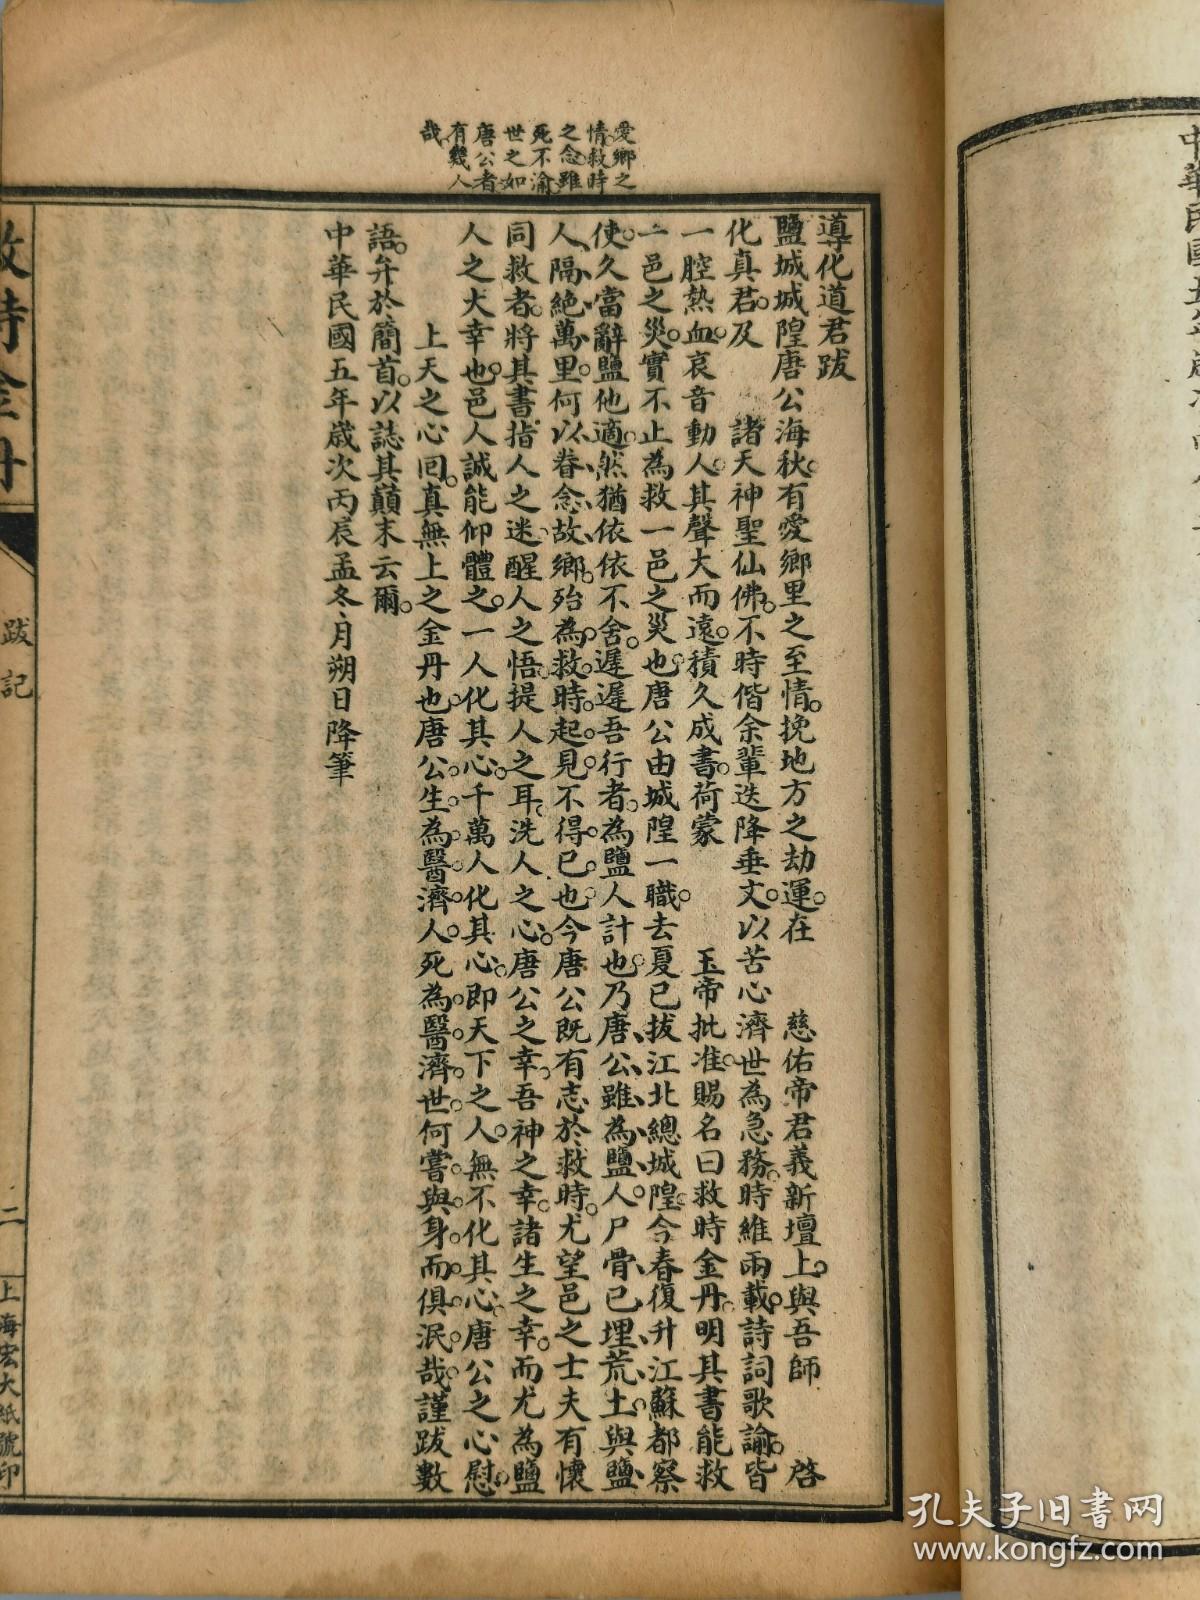 愛鄉之
情救時
之念雖
死不渝
世之如
唐公者
有幾人
哉
導化道君跋
鹽城城隍唐公海秋。有愛鄉里之至情。挽地方之劫運。在　慈佑帝君義新壇上。與吾師　啓
化真君。及　諸天神聖仙佛。不時偕余輩迭降垂文。以苦心濟世為急務。時維兩載。詩詞歌諭。皆
一腔熱血。哀音動人。其聲大而遠。積久成書。荷蒙　玉帝批准。賜名曰救時金丹。明其書能救
一邑之災。實不止為救一邑之災也。唐公由城隍一職。去夏已拔江北總城隍。今春復升江蘇都察
使。久當辭鹽他適。然猶依依不舍。遲遲吾行者。為鹽人計也。乃唐公雖為鹽人。尸骨已埋荒土。與鹽
人隔絕萬里。何以眷念故鄉。殆為救時起見。不得已也。今唐公既有志於救時。尤望邑之士夫有懷
同救者。將其書指人之迷。醒人之悟。提人之耳。洗人之心。唐公之幸。吾神之幸。諸生之幸。而尤為鹽
人之大幸也。邑人誠能仰體之。一人化其心。千萬人化其心。即天下之人。無不化其心。唐公之心慰。
上天之心回。真無上之金丹也。唐公生為醫濟人。死為醫濟世。何嘗與身而俱泯哉。謹跋數
語。弁於簡首。以誌其巔末云爾。
中華民國五年歲次丙辰孟冬月朔日降筆
救時金丹
跋記
二
上海宏大紙號印
中華民國五年歲次
孔夫子旧书网
www.kongfz.com